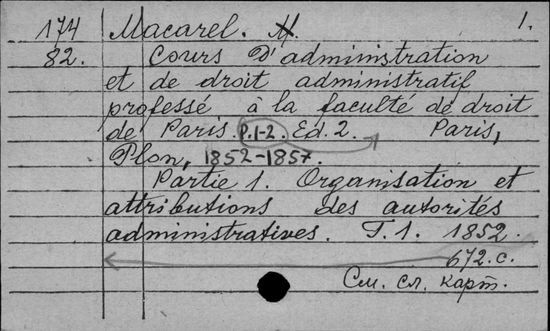 174 Macarel. M. 1.
82. Cours d'administration
et de droit administratif
professé à la faculté de droit
de Paris. P.1-2. Ed. 2. Paris,
Plon, 1852-1857.
Partie 1. Organisation et
attributions des autorités
administratives. T. 1. 1852.
672. с.
См. сл. карт.